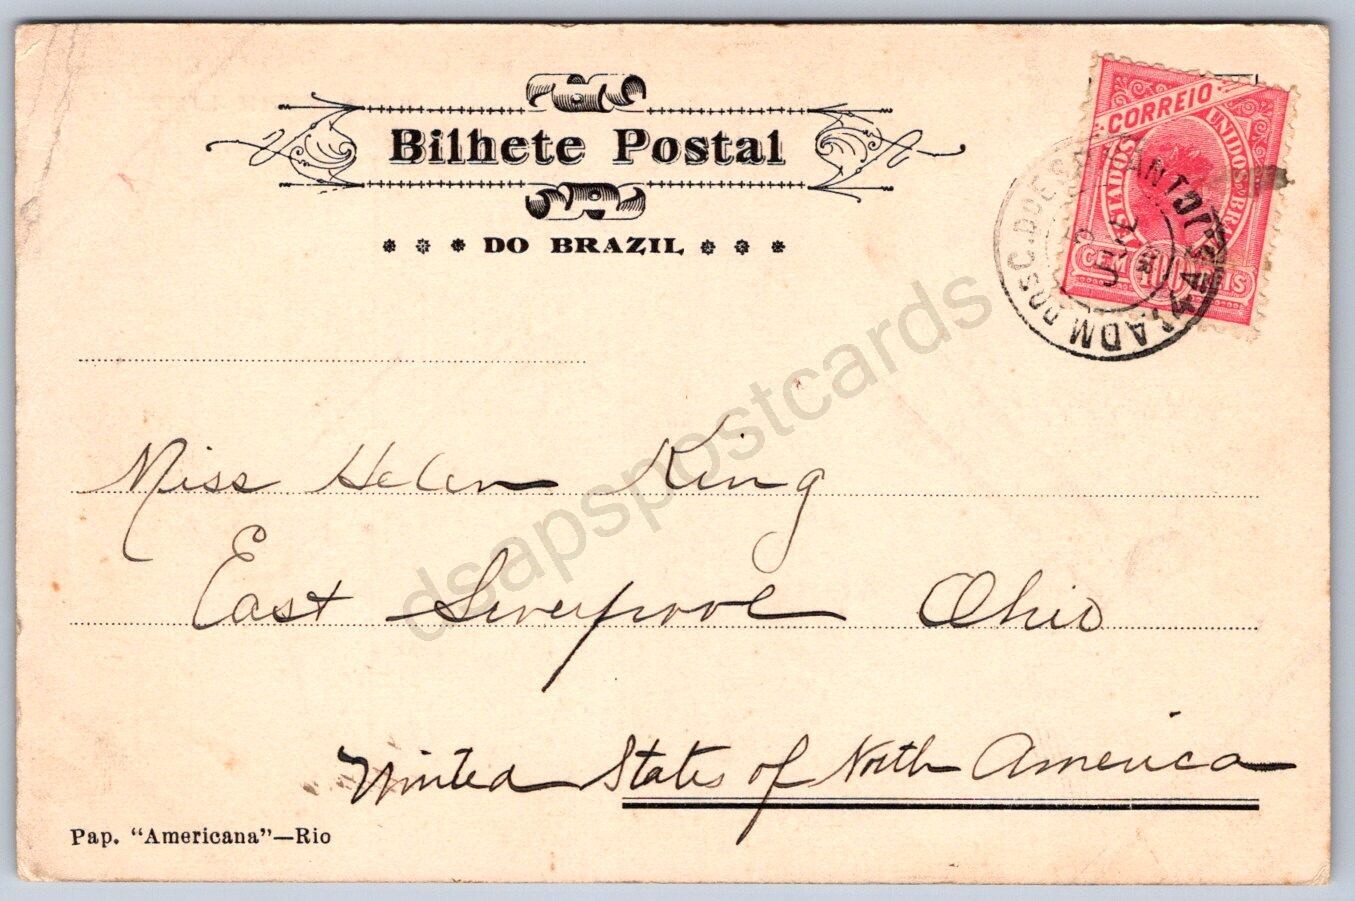 Bilhete Postal
DO BRAZIL
CORREIO
ESTADOS UNIDOS BR
CEM 100 REIS
ADM. DOS C. DO E
Miss Helen King
East Liverpool Ohio
United States of North America
Pap. "Americana"—Rio
dsapspostcards